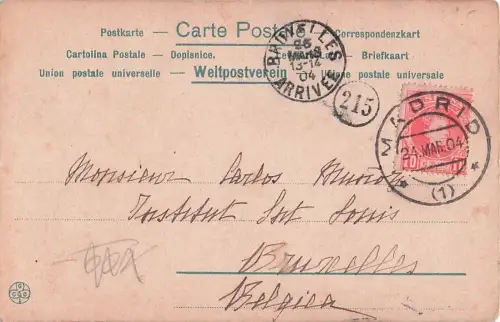 Carte Postale
Postkarte — Correspondenzkart
Cartolina Postale — Dopisnice. Briefkaart
Union postale universelle — Weltpostverein Unione postale universale
BRUXELLES
26
MARS
13-14
04
ARRIVEE
215
MADRID
24.MAR.04
(1)
10
Monsieur Carlos
Institut St Louis
Bruxelles
Belgica